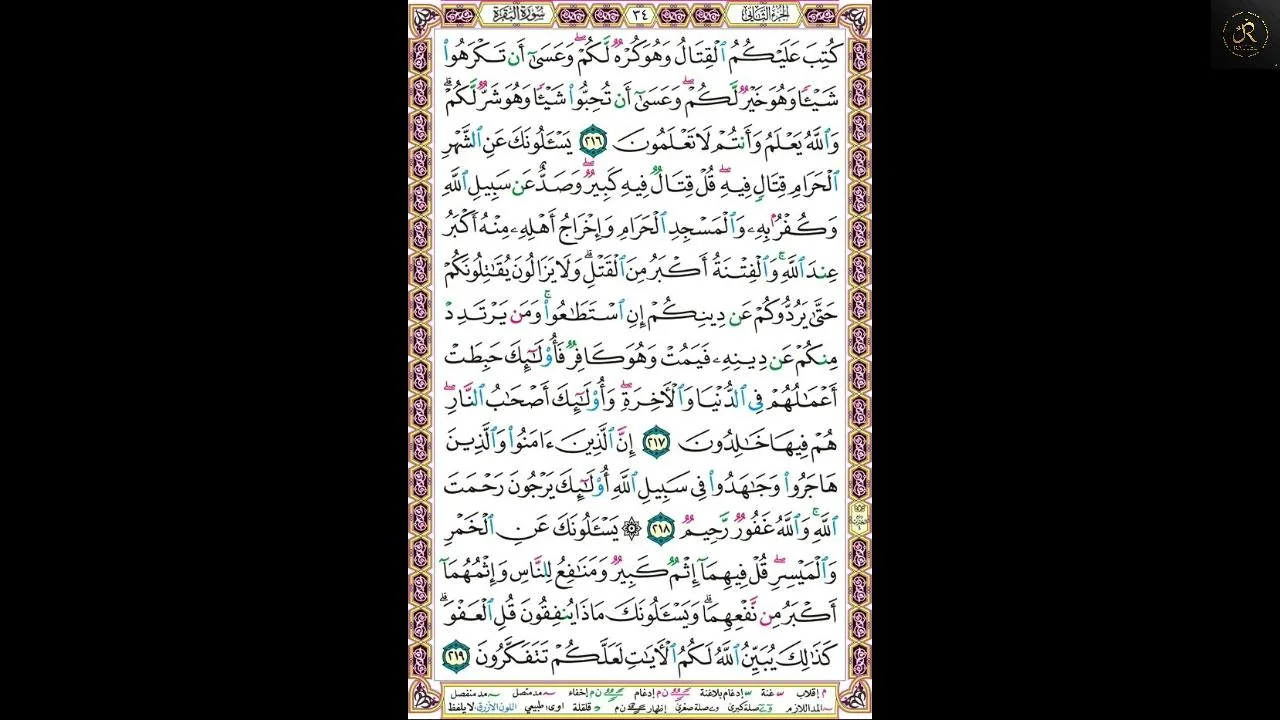 الجزء الثاني ٣٤ سورة البقرة
كُتِبَ عَلَيْكُمُ ٱلْقِتَالُ وَهُوَ كُرْهٌ لَّكُمْ ۖ وَعَسَىٰٓ أَن تَكْرَهُوا۟
شَيْـًٔا وَهُوَ خَيْرٌ لَّكُمْ ۖ وَعَسَىٰٓ أَن تُحِبُّوا۟ شَيْـًٔا وَهُوَ شَرٌّ لَّكُمْ ۗ
وَٱللَّهُ يَعْلَمُ وَأَنتُمْ لَا تَعْلَمُونَ ٢١٦ يَسْـَٔلُونَكَ عَنِ ٱلشَّهْرِ
ٱلْحَرَامِ قِتَالٍ فِيهِ ۖ قُلْ قِتَالٌ فِيهِ كَبِيرٌ ۖ وَصَدٌّ عَن سَبِيلِ ٱللَّهِ
وَكُفْرٌۢ بِهِۦ وَٱلْمَسْجِدِ ٱلْحَرَامِ وَإِخْرَاجُ أَهْلِهِۦ مِنْهُ أَكْبَرُ
عِندَ ٱللَّهِ ۚ وَٱلْفِتْنَةُ أَكْبَرُ مِنَ ٱلْقَتْلِ ۗ وَلَا يَزَالُونَ يُقَـٰتِلُونَكُمْ
حَتَّىٰ يَرُدُّوكُمْ عَن دِينِكُمْ إِنِ ٱسْتَطَـٰعُوا۟ ۚ وَمَن يَرْتَدِدْ
مِنكُمْ عَن دِينِهِۦ فَيَمُتْ وَهُوَ كَافِرٌ فَأُو۟لَـٰٓئِكَ حَبِطَتْ
أَعْمَـٰلُهُمْ فِى ٱلدُّنْيَا وَٱلْـَٔاخِرَةِ ۖ وَأُو۟لَـٰٓئِكَ أَصْحَـٰبُ ٱلنَّارِ ۖ
هُمْ فِيهَا خَـٰلِدُونَ ٢١٧ إِنَّ ٱلَّذِينَ ءَامَنُوا۟ وَٱلَّذِينَ
هَاجَرُوا۟ وَجَـٰهَدُوا۟ فِى سَبِيلِ ٱللَّهِ أُو۟لَـٰٓئِكَ يَرْجُونَ رَحْمَتَ
ٱللَّهِ ۚ وَٱللَّهُ غَفُورٌ رَّحِيمٌ ٢١٨ ۞ يَسْـَٔلُونَكَ عَنِ ٱلْخَمْرِ
وَٱلْمَيْسِرِ ۖ قُلْ فِيهِمَآ إِثْمٌ كَبِيرٌ وَمَنَـٰفِعُ لِلنَّاسِ وَإِثْمُهُمَآ
أَكْبَرُ مِن نَّفْعِهِمَا ۗ وَيَسْـَٔلُونَكَ مَاذَا يُنفِقُونَ قُلِ ٱلْعَفْوَ ۗ
كَذَٰلِكَ يُبَيِّنُ ٱللَّهُ لَكُمُ ٱلْـَٔايَـٰتِ لَعَلَّكُمْ تَتَفَكَّرُونَ ٢١٩
م إقلاب غنة إدغام بلاغنة ن م إدغام ن م إخفاء مد متصل مد منفصل
المد اللازم صلة كبرى صلة صغرى إظهار ن م قلقلة اوى: طبيعي اللون الأزرق لا يلفظ